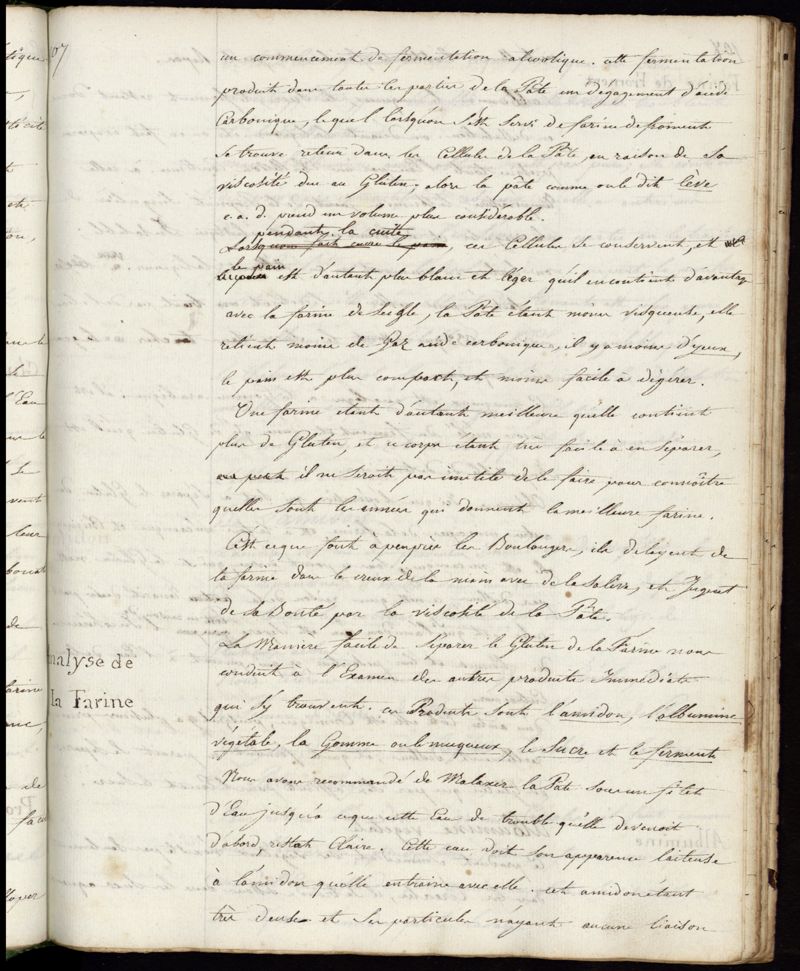 107
un commencement de fermentation alcoolique. cette fermentation
produit dans toutes les parties de la Pâte un dégagement d'acide
Carbonique, lequel lorsqu'on s'est servi de farine de froment
se trouve retenu dans les Cellules de la Pâte, en raison de sa
viscosité due au Gluten, alors la pâte comme on le dit leve
c. a. d. prend un volume plus considérable.
pendant la cuite
Lorsquon fait cuire le pain, ces Cellules se conservent, et
le pain
est d'autant plus blanc et léger qu'il en contient davantage
avec la farine de Seigle, la Pâte étant moins visqueuse, elle
retient moins de Gaz acide carbonique, il y a moins d'yeux,
le pain est plus compact, et moins facile à digérer.
Une farine etant d'autant meilleure quelle contient
plus de Gluten, et ce corps etant très facile à en séparer,
il ne seroit pas inutile de le faire pour connoître
quelles sont les années qui donnent la meilleure farine.
C'est ce que font à peu près les Boulangers, ils delayent de
la farine dans le creux de la main avec de la salive, et Jugent
de sa Bonté par la viscosité de la Pâte.
nalyse de
la Farine
La Maniere facile de Séparer le Gluten de la Farine nous
conduit à l'Examen des autres produits Immédiats
qui s'y trouvent. ces Produits sont l'amidon, l'albumine
végétale, la Gomme ou le muqueux, le Sucre et le ferment
Nous avons recommandé de Malaxer la Pate sous un filet
d'Eau jusqu'à ce que cette Eau de trouble qu'elle devenoit
d'abord, restat Claire. Cette eau doit son apparence laiteuse
à l'amidon qu'elle entraine avec elle. cet amidon étant
très dense et ses particules n'ayant aucune liaison